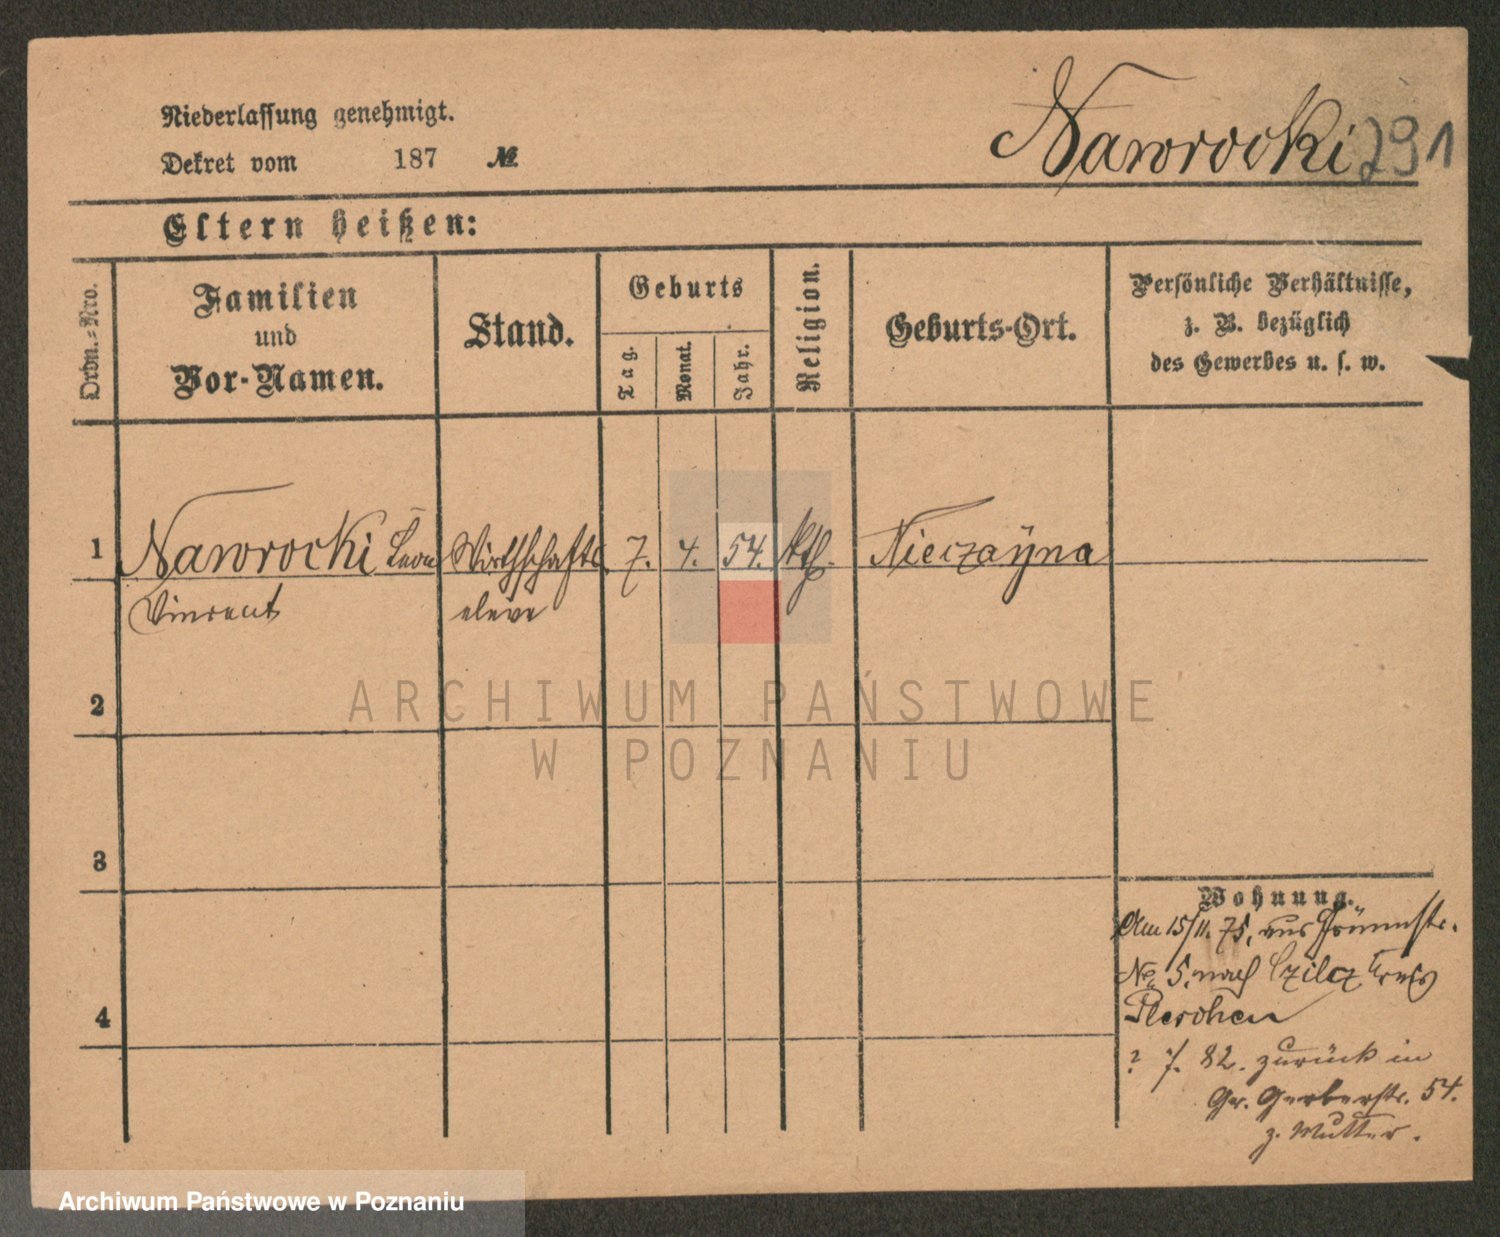 Niederlassung genehmigt.
Dekret vom 187 №
Nawrocki 291
Eltern heißen:
Ordn.-Nro.
Familien
und
Vor-Namen.
Stand.
Geburts
Tag.
Monat.
Jahr.
Religion.
Geburts-Ort.
Persönliche Verhältnisse,
z. B. bezüglich
des Gewerbes u. s. w.
1 Nawrocki Leon Wirthschafts 7. 4. 54. kth. Nieczayna
Vincent eleve
2
ARCHIWUM PAŃSTWOWE
W POZNANIU
3
4
Wohnung.
Am 15/11. 75, aus
No 5. nach Czilcz Kreis
Pleschen
? 7. 82. zurück in
Gr. Gerberstr. 54.
z. Mutter.
Archiwum Państwowe w Poznaniu